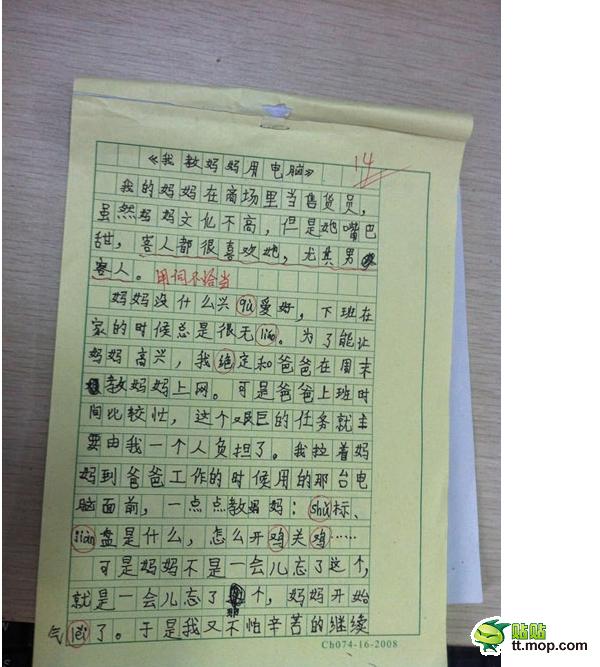 《我教妈妈用电脑》
14
我的妈妈在商场里当售货员，
虽然妈妈文化不高，但是她嘴巴
甜，客人都很喜欢她，尤其男
客人。用词不恰当
妈妈没什么兴qù爱好，下班在
家的时候总是很无liáo。为了能让
妈妈高兴，我绝定和爸爸在周末
教妈妈上网。可是爸爸上班时
间比较忙，这个艰巨的任务就主
要由我一个人负担了。我拉着妈
妈到爸爸工作的时候用的那台电
脑面前，一点点教妈妈：shǔ标、
jiàn盘是什么，怎么开鸡关鸡……
可是妈妈不是一会儿忘了这个，
就是一会儿忘了那个，妈妈开始
气lěi了。于是我又不怕辛苦的继续
Ch074-16-2008
贴贴
tt.mop.com